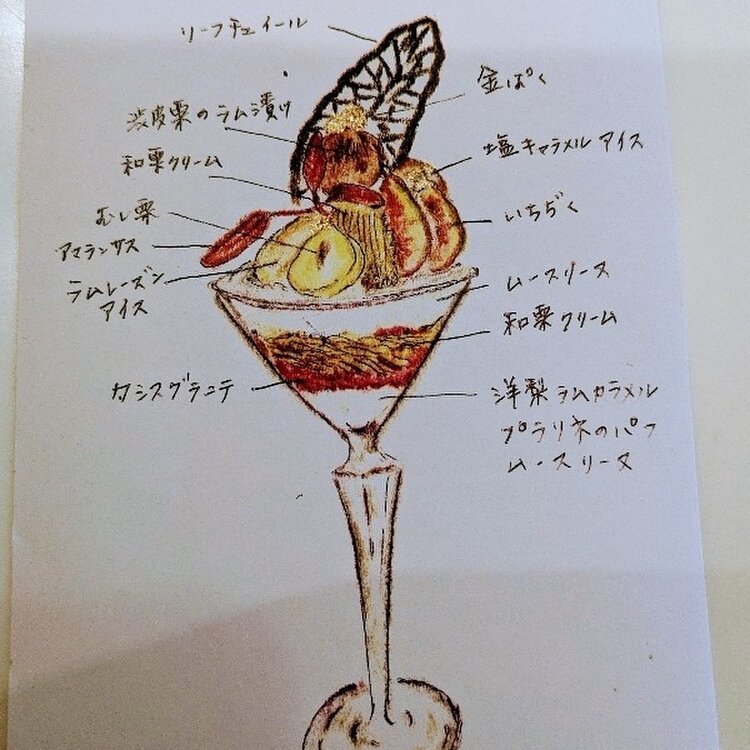 リーフチュイール
金ぱく
渋皮栗のラム漬け
塩キャラメルアイス
和栗クリーム
むし栗
いちぢく
アマランサス
ラムレーズン
アイス
ムースリーヌ
和栗クリーム
カシスグラニテ
洋梨ラムカラメル
プラリネのパフ
ムースリーヌ